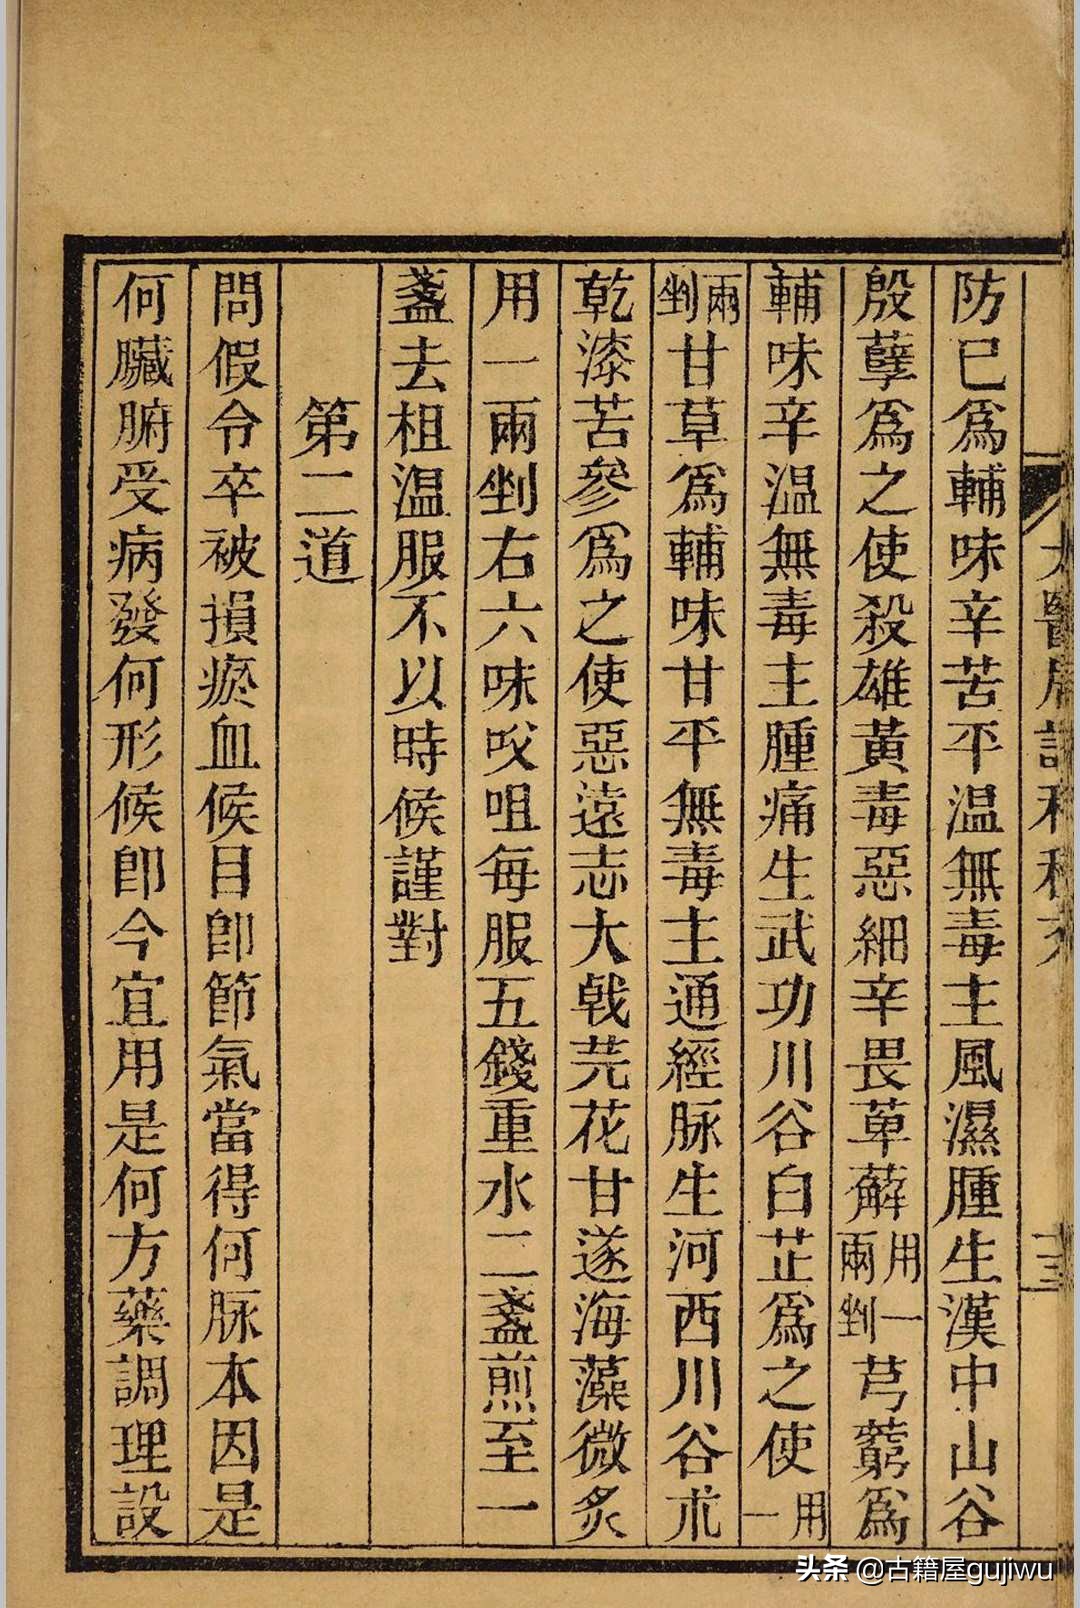 防已爲輔味辛苦平温無毒主風濕腫生漢中山谷
殷孽爲之使殺雄黄毒惡細辛畏萆薢用一兩剉芎藭爲
輔味辛温無毒主腫痛生武功川谷白芷爲之使用一
兩剉甘草爲輔味甘平無毒主通經脉生河西川谷朮
乾漆苦參爲之使惡遠志大戟芫花甘遂海藻微炙
用一兩剉右六味㕮咀每服五錢重水二盞煎至一
盞去柤温服不以時候謹對
第二道
問假令卒被損瘀血候目即節氣當得何脉本因是
何臟腑受病發何形候即今宜用是何方藥調理設
头条 @古籍屋gujiwu